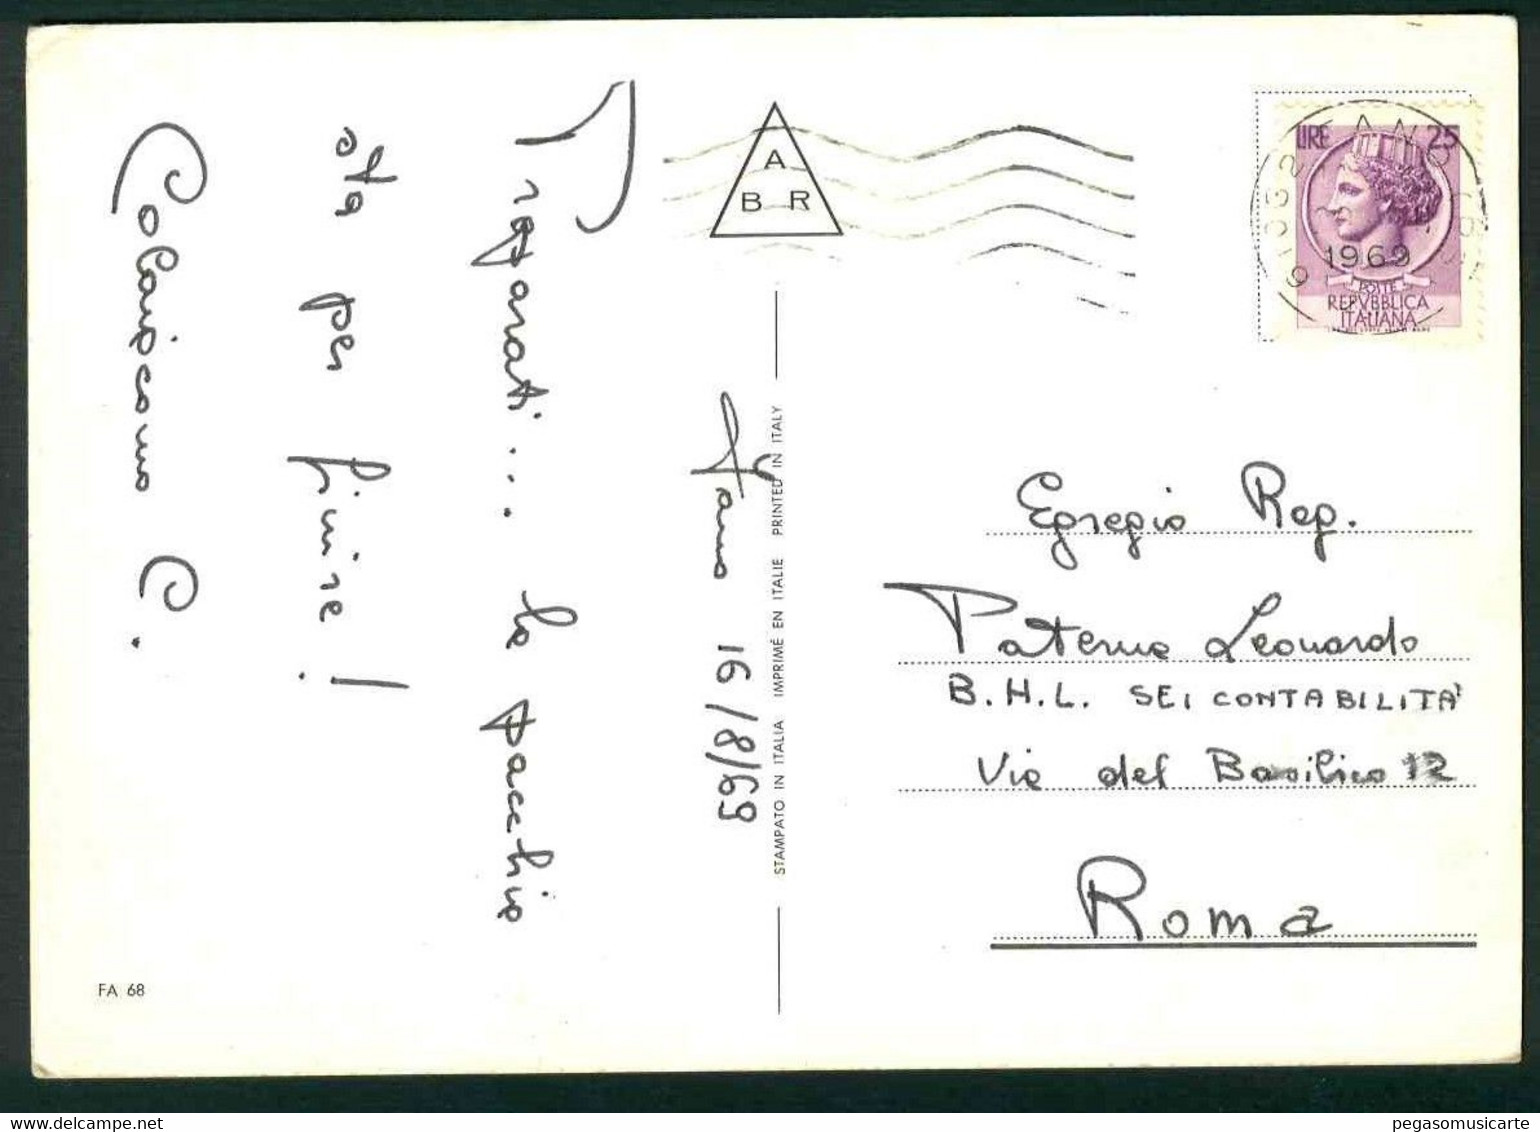 Preparati... la pacchia
sta per finire!
Colaiacomo C.
Fano 16/8/69
A
B R
STAMPATO IN ITALIA IMPRIMÉ EN ITALIE PRINTED IN ITALY
FA 68
LIRE 25
61032 FANO
1969
POSTE
REPVBBLICA
ITALIANA
Egregio Rag.
Paterna Leonardo
B.H.L. SEI CONTABILITA'
Via del Basilico 12
Roma
pegasomusicarte@hotmail.com